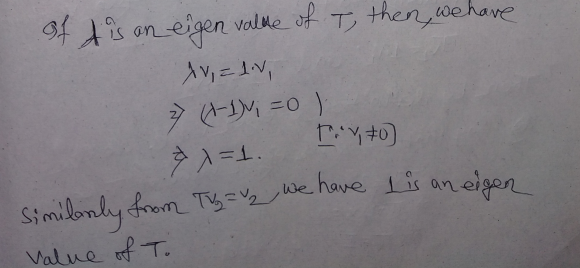 If λ is an eigen value of T, then, we have
λv₁ = 1·v₁
⇒ (λ-1)v₁ = 0 )
⇒ λ = 1. [∵ v₁ ≠ 0]
Similarly from Tv₂ = v₂, we have 1 is an eigen
value of T.